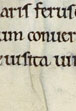 aris ferus
um conuer
e uisita ui